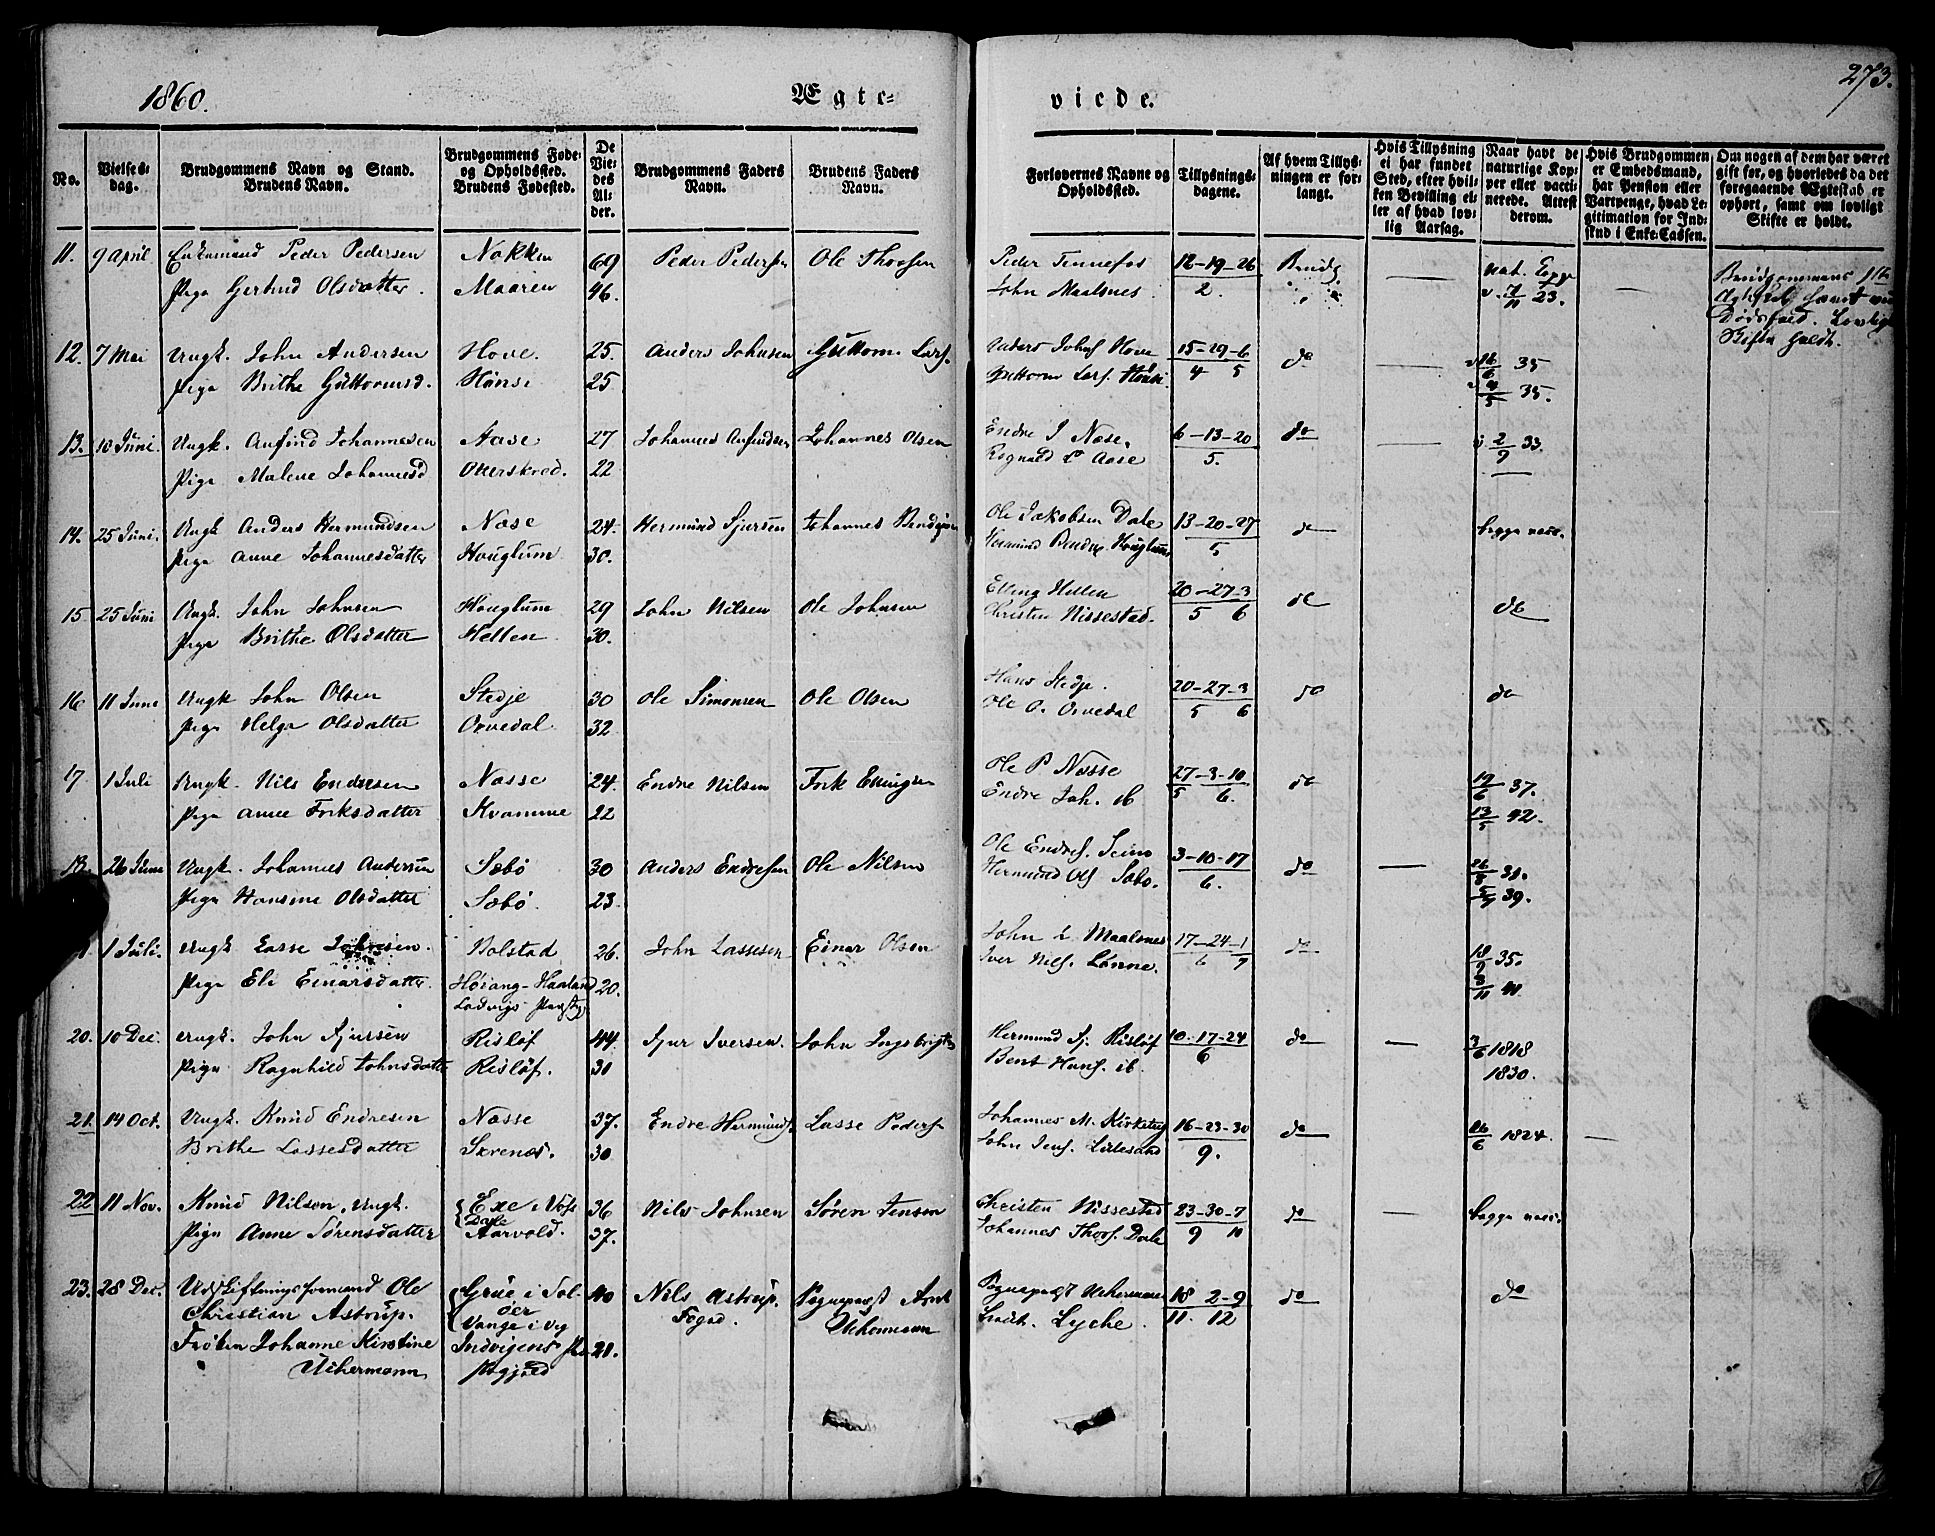 1860.
Ægte-
viede.
273.
No.
Vielses-
dag.
Brudgommens Navn og Stand.
Brudens Navn.
Brudgommens Føde-
og Opholdssted.
Brudens Fødested.
De
Vie-
des
Al-
der.
Brudgommens Faders
Navn.
Brudens Faders
Navn.
Forlovernes Navne og
Opholdssted.
Tillysnings-
dagene.
Af hvem Tillys-
ningen er for-
langt.
Hvis Tillysning
ei har fundet
Sted, efter hvil-
ken Bevilling el-
ler af hvad lov-
lig Aarsag.
Naar havt de
naturlige Kop-
per eller vacci-
nerede. Attest
derom.
Hvis Brudgommen
er Embedsmand,
har Pension eller
Vartpenge, hvad Le-
gitimation for Ind-
skud i Enke-Cassen.
Om nogen af dem har været
gift før, og hvorledes da det
foregaaende Ægteskab er
ophørt, samt om lovligt
Skifte er holdt.
11. 9 April Enkemand Peder Pedersen Nokken 69 Peder Pedersen Ole Thorsen Peder Tennefos 12-19-26 Brudg nat. Kopp
Pige Gertrud Olsdatter. Maaren 46. John Maalsnes. 2. v. 7/11 23.
Brudgommens
Dødsfald. Lovligt
Skifte holdt.
12. 7 Mai Ungk. John Andersen Hove. 25. Anders Johnsen Guttorm Lars. Anders Johns Hove 15-29-6 do v 16/6 35
Pige Brithe Guttormsd. Hønsi 25 Guttorm Lars. Hønsi 4 5 v 4/5 35.
13. 10 Juni. Ungk. Anfind Johannesen Nase 27 Johannes Anfindsen Johannes Olsen Endre J Nase. 6-13-20 do v. 2/9 33.
Pige Malene Johannesd Otterskred. 22 Rognald Aase 5.
14. 25 Juni. Ungk Anders Hermundsen Nase 24. Hermund Sjursen Johannes Ole Jakobsen Dale 13-20-27 do begge vacc.
Pige Anne Johannesdatter Houglum 30. Hermund Houglum 5
15 25 Juni Ungk. John Johnsen Houglum 29 John Nilsen Ole Johnsen Elling Hellen 20-27-3 do do
Pige Brithe Olsdatter Hellen 30. Christen Nissestad. 5 6
16 11 Juni Ungk John Olsen Stedje 30 Ole Simonsen Ole Olsen Hans Stedje. 20-27-3 do do
Pige Helga Olsdatter Orvedal. 32 Ole O. Orvedal 5 6
17 1 Juli Ungk. Nils Endresen Nasse 24. Endre Nilsen Frik Ellingsen Ole P Nasse 27-3-10 do 19/6 37.
Pige Anne Friksdatter Kvamme 22 Endre Joh. ib 5 6. 13/5 42.
18. 26 Juni Ungk. Johannes Andersen Sæbø 30 Anders Endresen Ole Nilsen Ole Endres. 3-10-17 do 38.
Pige Hansine Olsdatter Sæbø. 23. Hermund Ols Sæbø. 6. 39.
1 Juli. Ungk. Lasse Johnsen. Nolstad 26. John Lassesen Einar Olsen John L Maalsnes 17-24-1 do 18/9 35.
Pige Eli Einarsdatter. Høiang-Haaland 20. Iver Nils. Lønne. 6 7 8/11 41.
Ladvigs
20. 10 Dec. Ungk. John Sjursen Risløf 44. Sjur Iversen John Ingebrigts Hermund Sj. Risløf 10-17-24 do 3/6 1818
Pige Ragnhild Johnsdatter Risløf. 31 Bent Hans. ib. 6 1830.
21. 14 Oct. Ungk. Knud Endresen Nasse 37. Endre Hermunds Lasse Peders Johannes M. 16-23-30 do 26/6 1824.
Brithe Lassesdatter Skrenes. 30 John Jens. Lillesand 9.
22 11 Nov. Knud Nilsen, Ungk. Exe i Vos 36 Nils Johnsen Søren Jensen Christen Nissestad 23-30-7 do begge vacc.
Dale
Pige Anne Sørensdatter Aarvold. 37. Johannes Thors. Dale 9 10
23. 28 Dec. Udskiftningsformand Ole Grue i Sol- 40 Nils Astrup. Sogneprest Arnt Sogneprest Uchermann 18 2-9 do do
Christian Astrup. øer Foged. Uchermann Lyche. 11. 12
Vange i
Frøken Johanne Kirstine Indvigens 21.
Uchermann